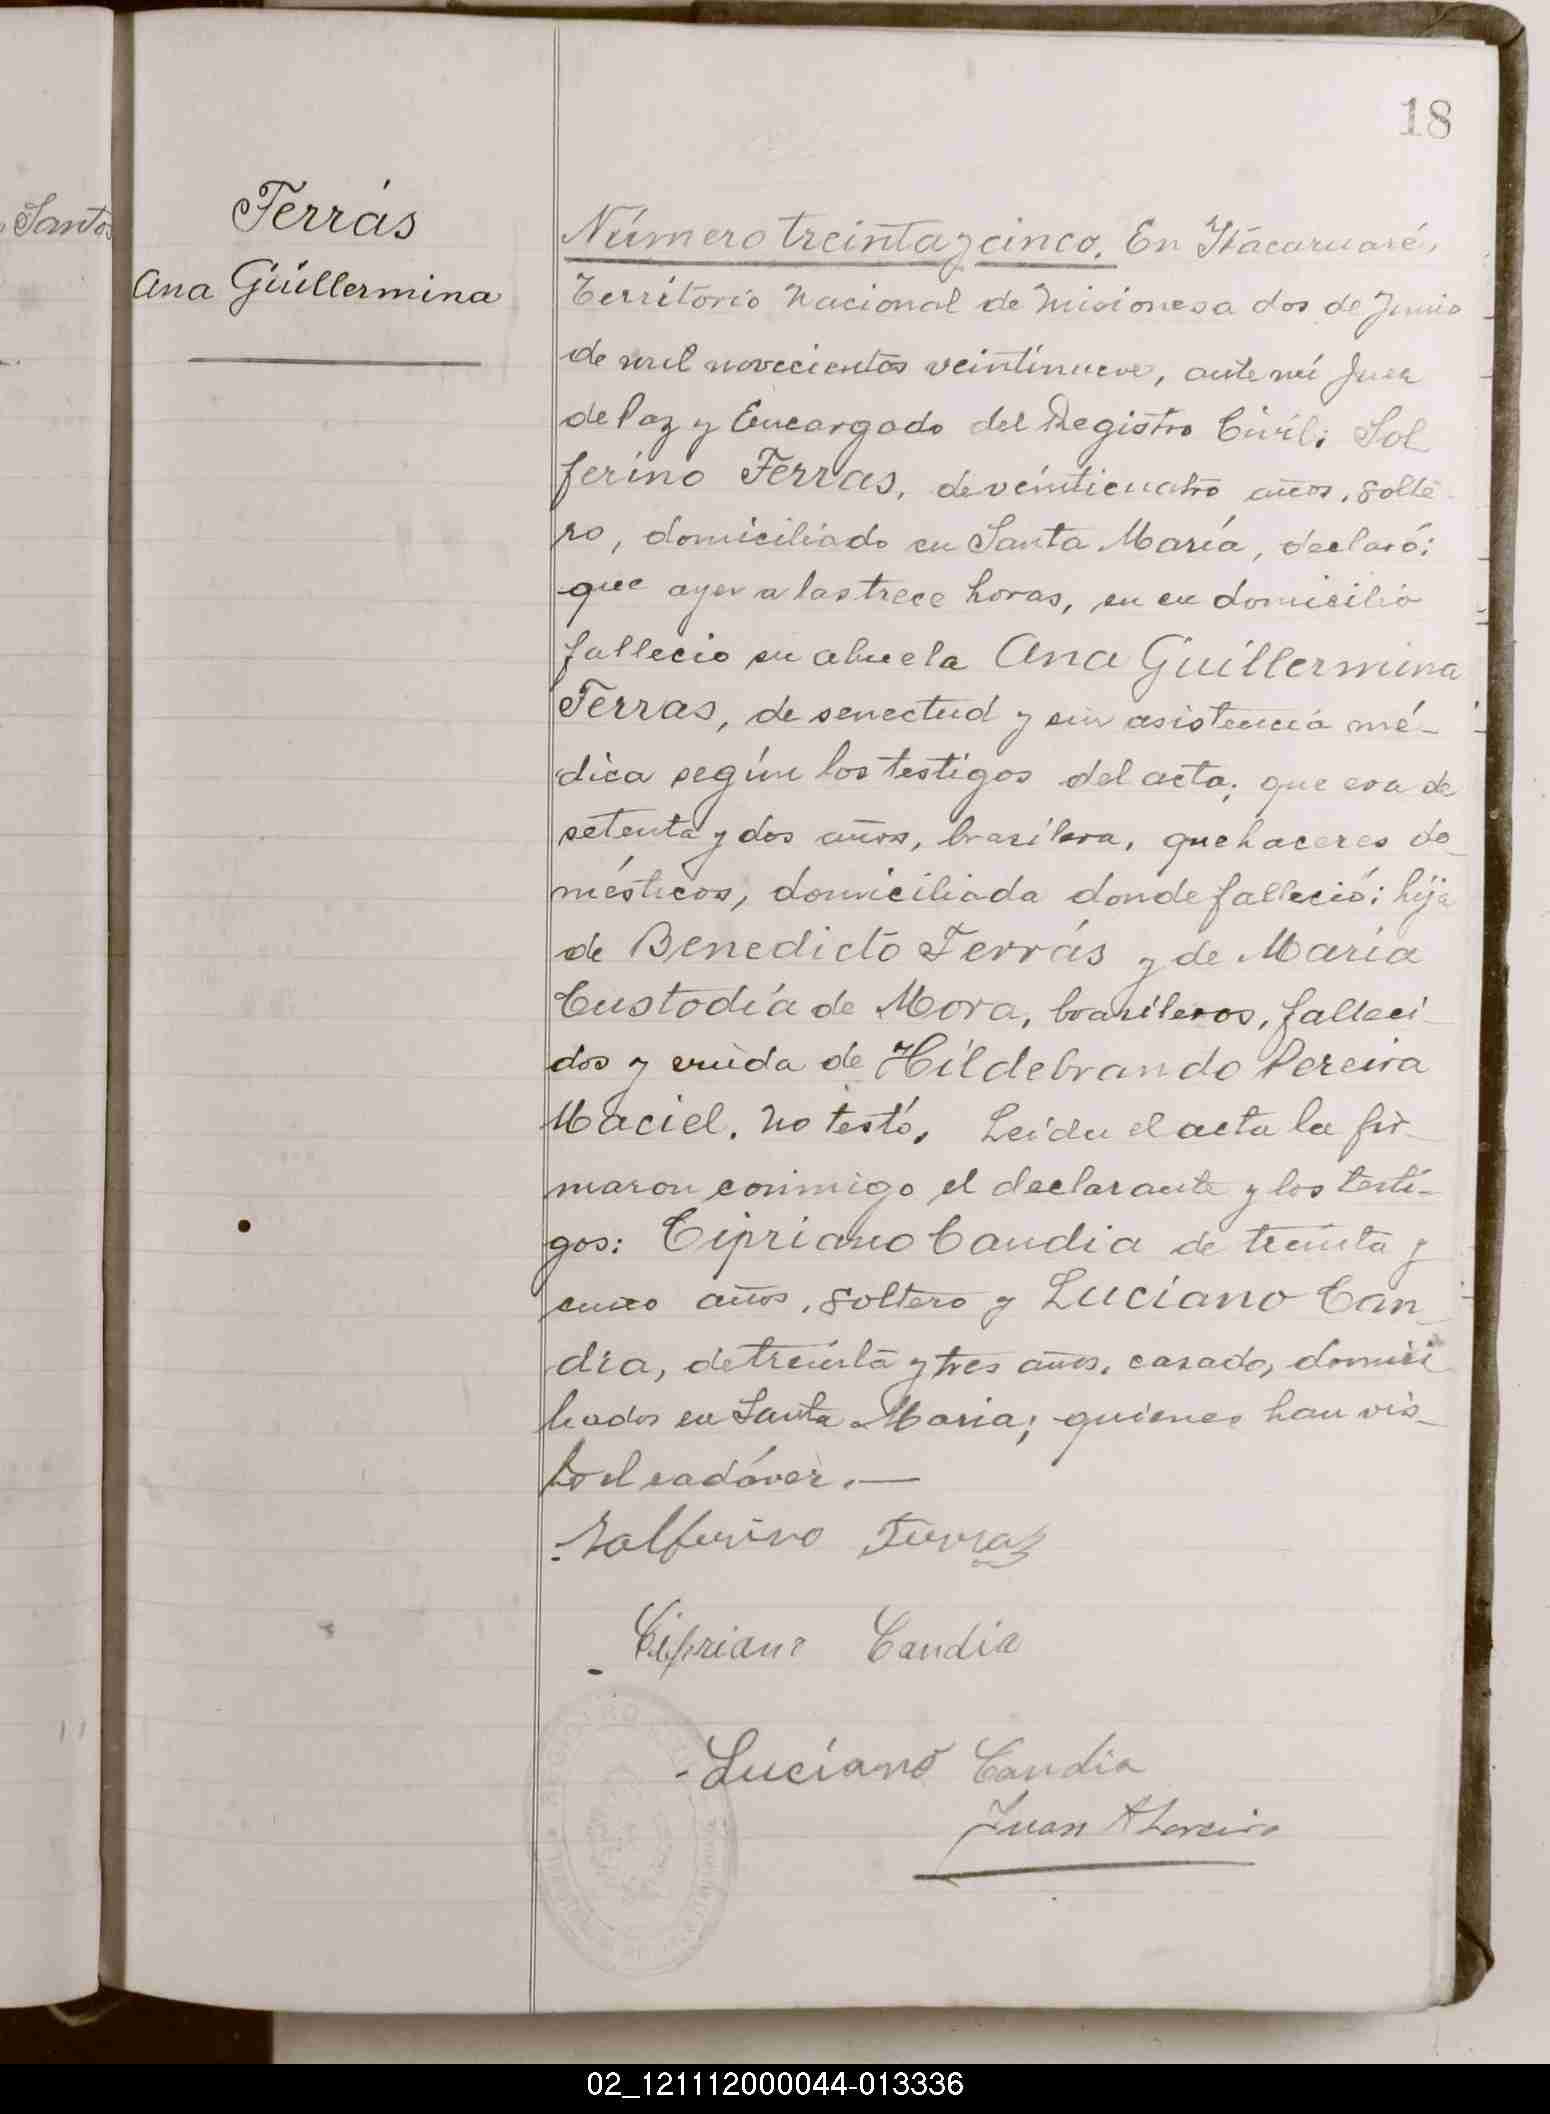 18
Santos
Ferrás
Ana Guillermina
Número treinta y cinco. En Itacaruaré,
Territorio Nacional de Misiones a dos de Junio
de mil novecientos veintinueve, ante mí Juez
de Paz y Encargado del Registro Civil: Sol
ferino Ferras, de veinticuatro años, solte-
ro, domiciliado en Santa María, declaró:
que ayer a las trece horas, en su domicilio
fallecio su abuela Ana Guillermina
Ferras, de senectud y sin asistencia mé-
dica según los testigos del acta; que era de
setenta y dos años, brasilera, quehaceres do-
mésticos, domiciliada donde falleció; hija
de Benedicto Ferrás y de María
Custodia de Mora, brasileros, falleci-
dos y viuda de Hildebrando Pereira
Maciel. No testó. Leida el acta la fir-
maron conmigo el declarante y los testi-
gos: Cipriano Candia de treinta y
cinco años, soltero y Luciano Can-
dia, de treinta y tres años, casado, domici
liados en Santa Maria; quienes han vis-
to el cadáver.—
Salferino Ferraz
Cipriano Candia
Luciano Candia
Juan A
02_121112000044-013336